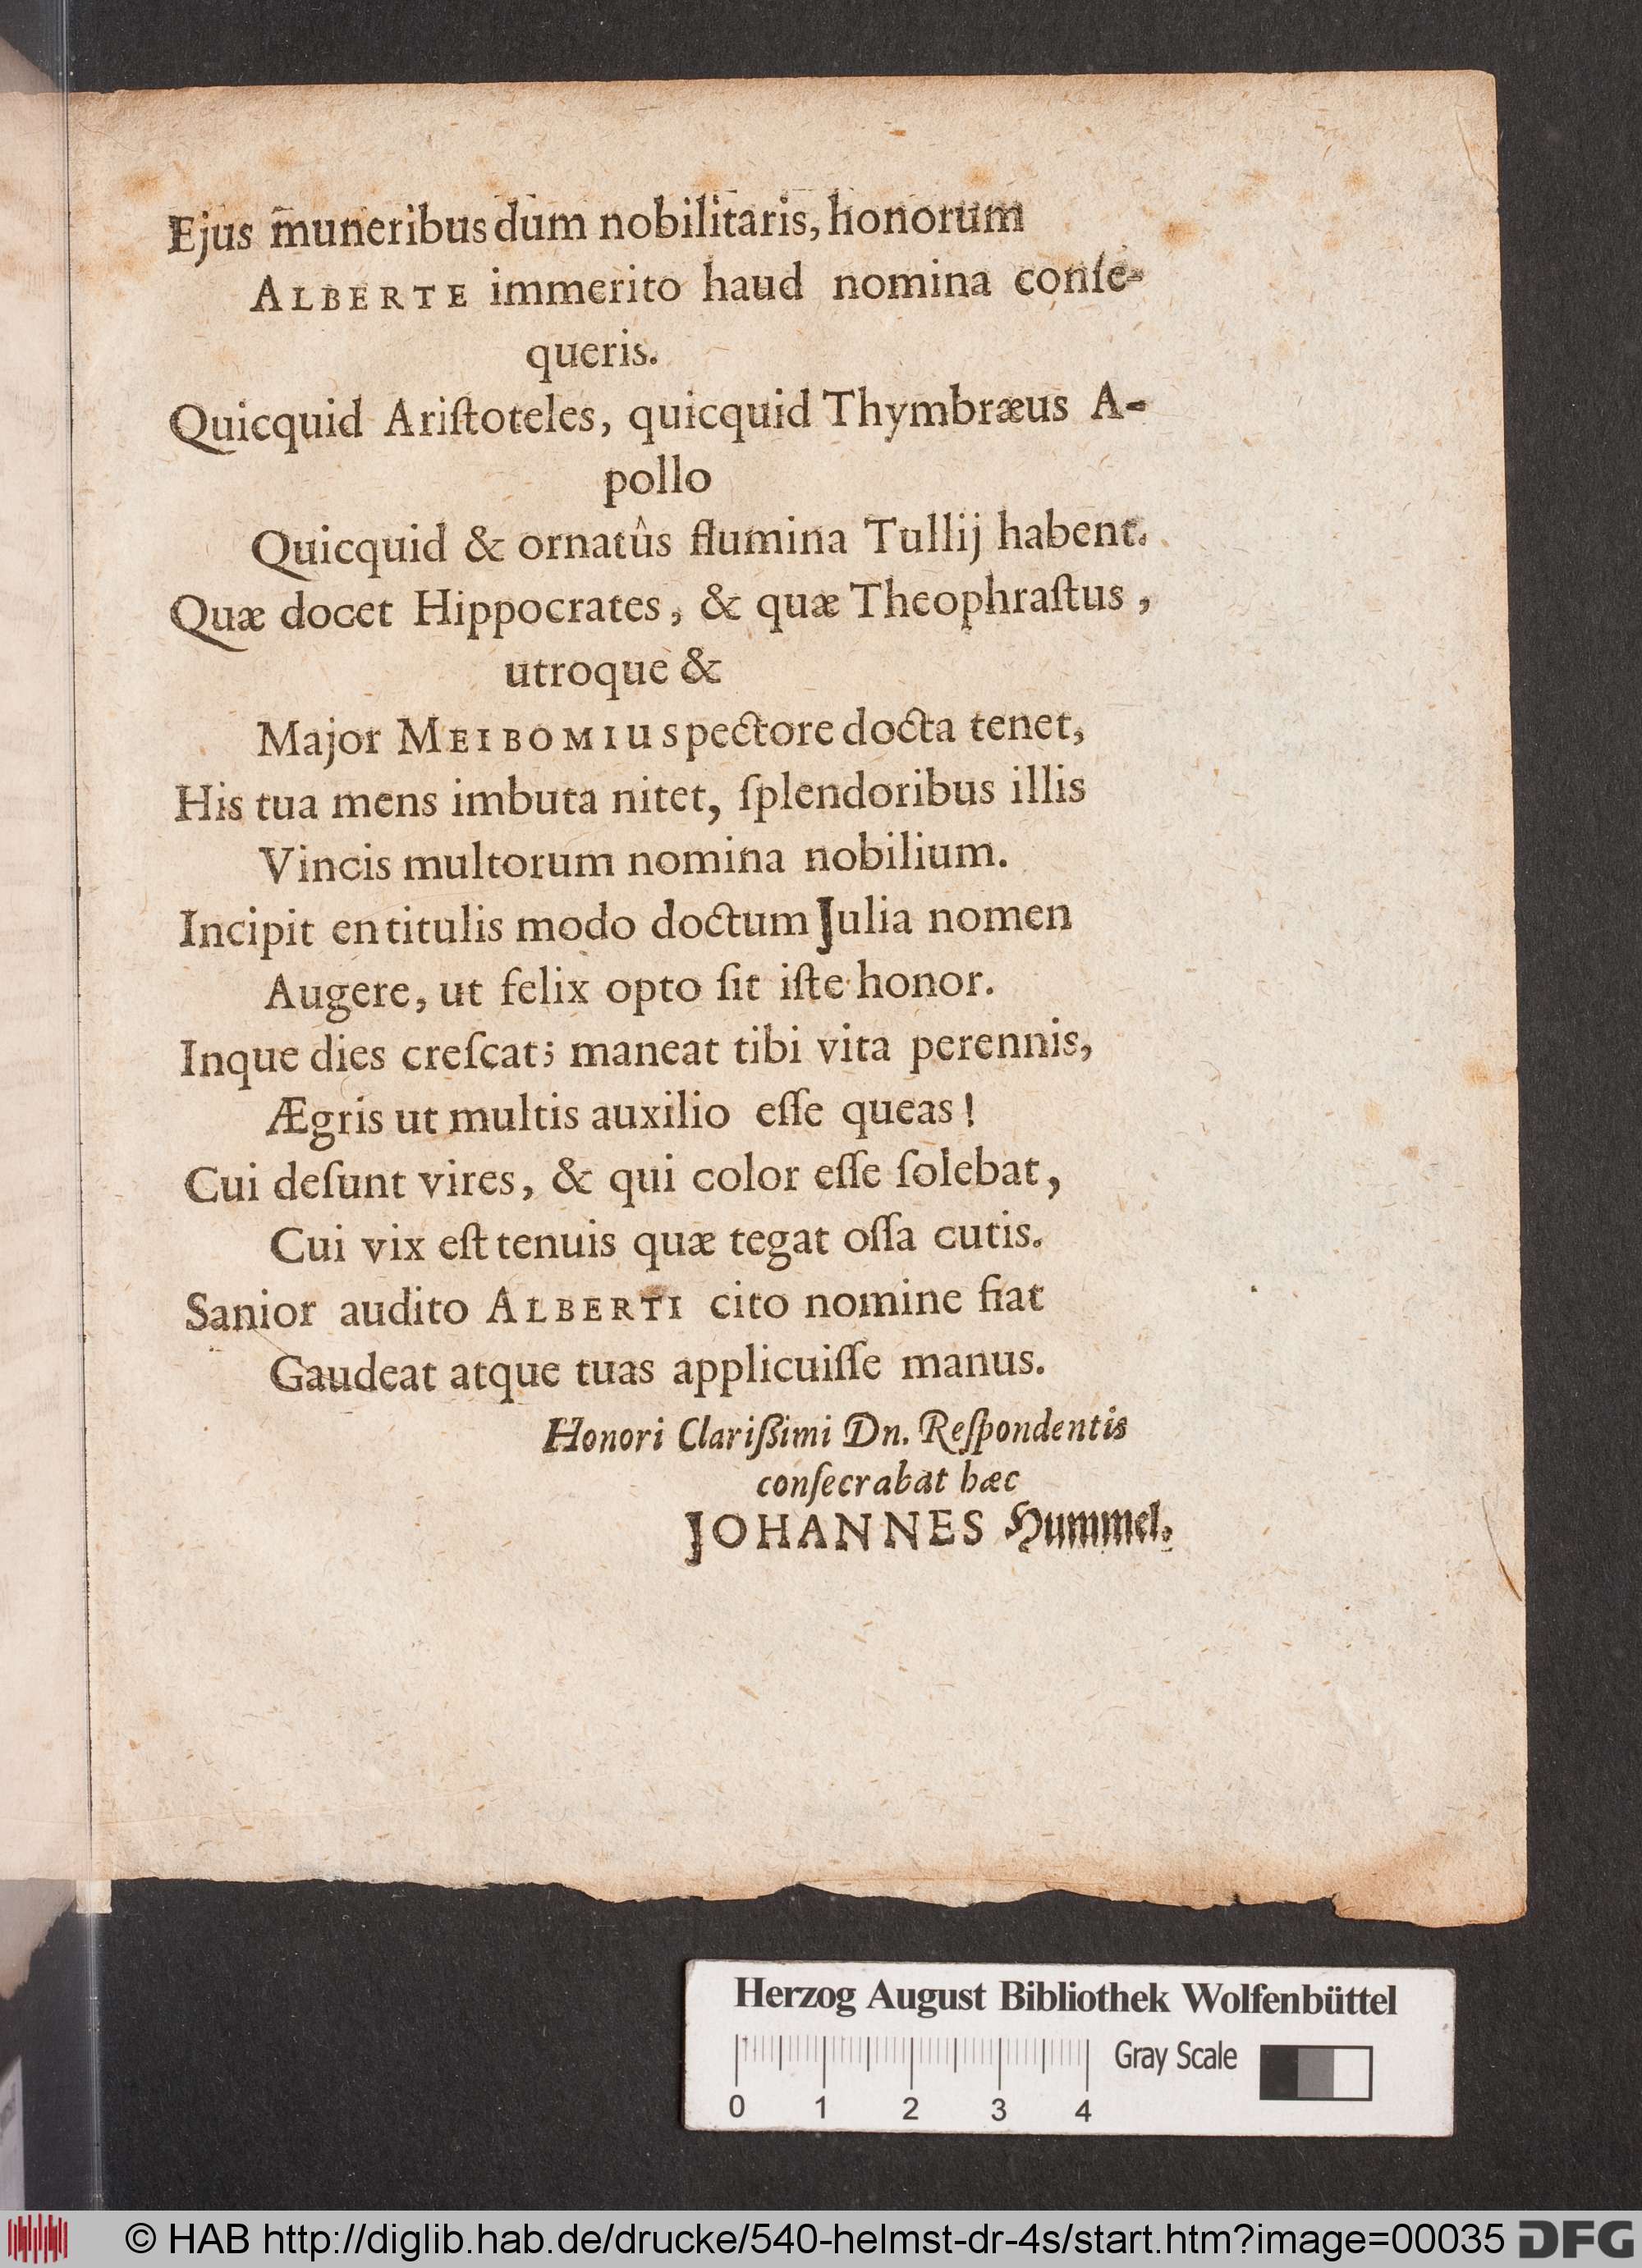 Ejus muneribus dum nobilitaris, honorum
ALBERTE immerito haud nomina conſe-
queris.
Quicquid Ariſtoteles, quicquid Thymbræus A-
pollo
Quicquid & ornatûs flumina Tullij habent.
Quæ docet Hippocrates, & quæ Theophraſtus,
utroque &
Major MEIBOMIus pectore docta tenet,
His tua mens imbuta nitet, ſplendoribus illis
Vincis multorum nomina nobilium.
Incipit en titulis modo doctum Julia nomen
Augere, ut felix opto ſit iſte honor.
Inque dies creſcat; maneat tibi vita perennis,
Ægris ut multis auxilio eſſe queas!
Cui deſunt vires, & qui color eſſe ſolebat,
Cui vix eſt tenuis quæ tegat oſſa cutis.
Sanior audito ALBERTI cito nomine fiat
Gaudeat atque tuas applicuiſſe manus.
Honori Clariſſimi Dn. Reſpondentis
conſecrabat hæc
JOHANNES Hummel.
Herzog August Bibliothek Wolfenbüttel
Gray Scale
0 1 2 3 4
© HAB http://diglib.hab.de/drucke/540-helmst-dr-4s/start.htm?image=00035 DFG